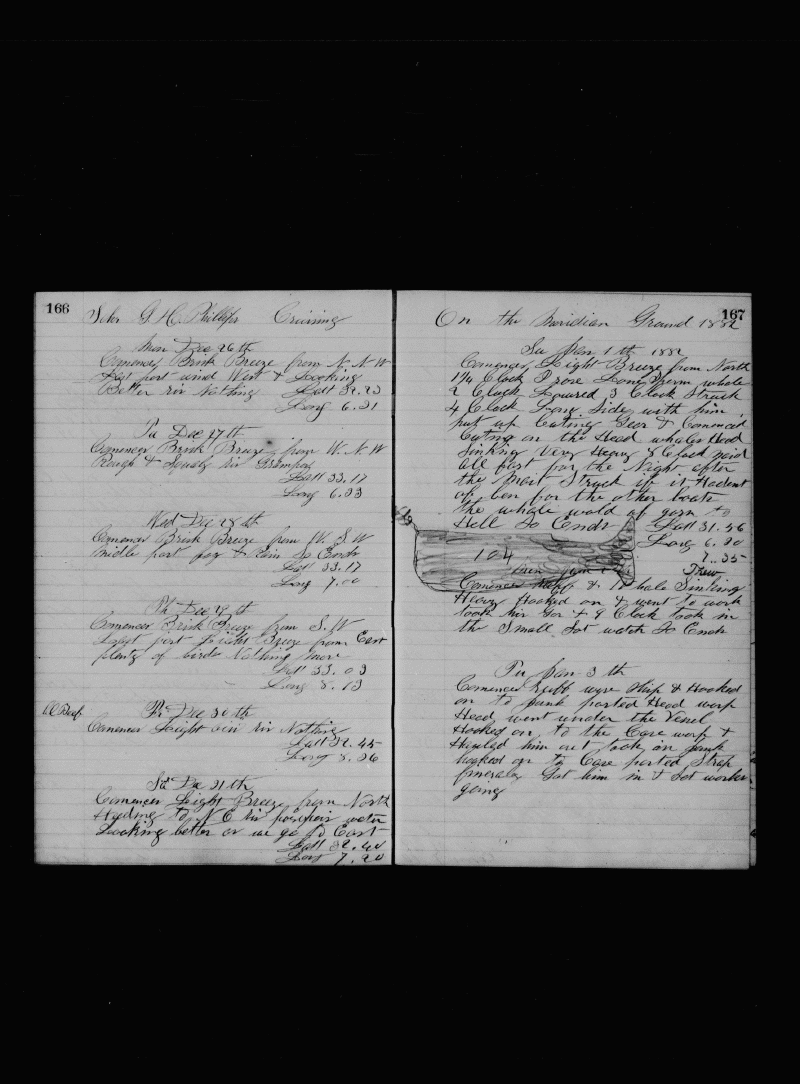 166
Schr G. H. Phillips Cruising
Mon Dec 26 th
Comences Brisk Breeze from N. N W
Last part and West & Looking
Better Nothing Latt 32.23
Long 6.31
Tu Dec 27 th
Comences Brisk Breeze from W. N. W
Rough & Squaly Grampus
Latt 33.17
Long 6.33
Wed Dec 28 th
Comences Brisk Breeze from W. S. W
Middle part fog & Rain So Ends
Latt 33.17
Long 7.00
Th Dec 29 th
Comences Brisk Breeze from S. W
Last part Light Breeze from East
plenty of birds Nothing more
Latt 33.03
Long 8.13
Fri Dec 30 th
Comences Light Nothing
Latt 32.45
Long 8.26
Sat Dec 31 th
Comences Light Breeze from North
Heading to N E water
Looking better as we go to East
Latt 32.40
Long 7.20
167
On the Meridian Ground 1882
Su Jan 1 th 1882
Comences Light Breeze from North
Clock I rose Lone Sperm whale
2 Clock Lowered 3 Clock Struck
4 Clock Long Side with him
put up Cuting Gear & Comenced
Cuting on the Head whales Head
Sinking Very Heavy 8 Clock
All fast for the Night after
the Mait Struck if it Hadent
of ben for the other boats
the whale would of gorn to
Hell So Ends Latt 31.56
Long 6.20
7.35
104
Comences & Whale Sinking
Heavy Hooked on & went to work
took & 8 Clock took in
the Small Sot watch So Ends
Tu Jan 3 th
Comences & Hooked
on to Junk parted Head warp
Head went under the Vessel
Hooked on to the Case warp &
Hauled him out took in Junk
hooked on to Case parted Strap
Got him in & Sot worke
going